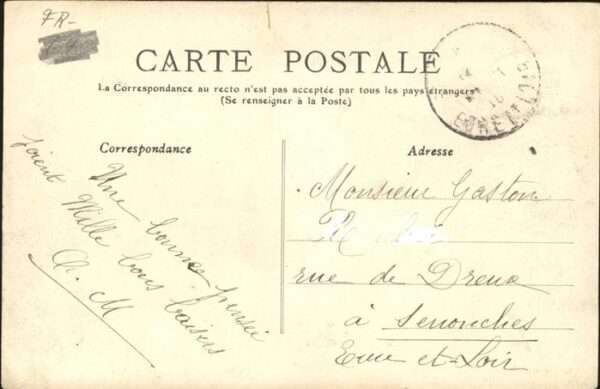 FR-
CARTE POSTALE
La Correspondance au recto n'est pas acceptée par tous les pays étrangers
(Se renseigner à la Poste)
Correspondance
Une bonne pensée
Mille bons baisers
A. M
Adresse
Monsieur Gaston
rue de Dreux
à Senonches
Eure et-Loir